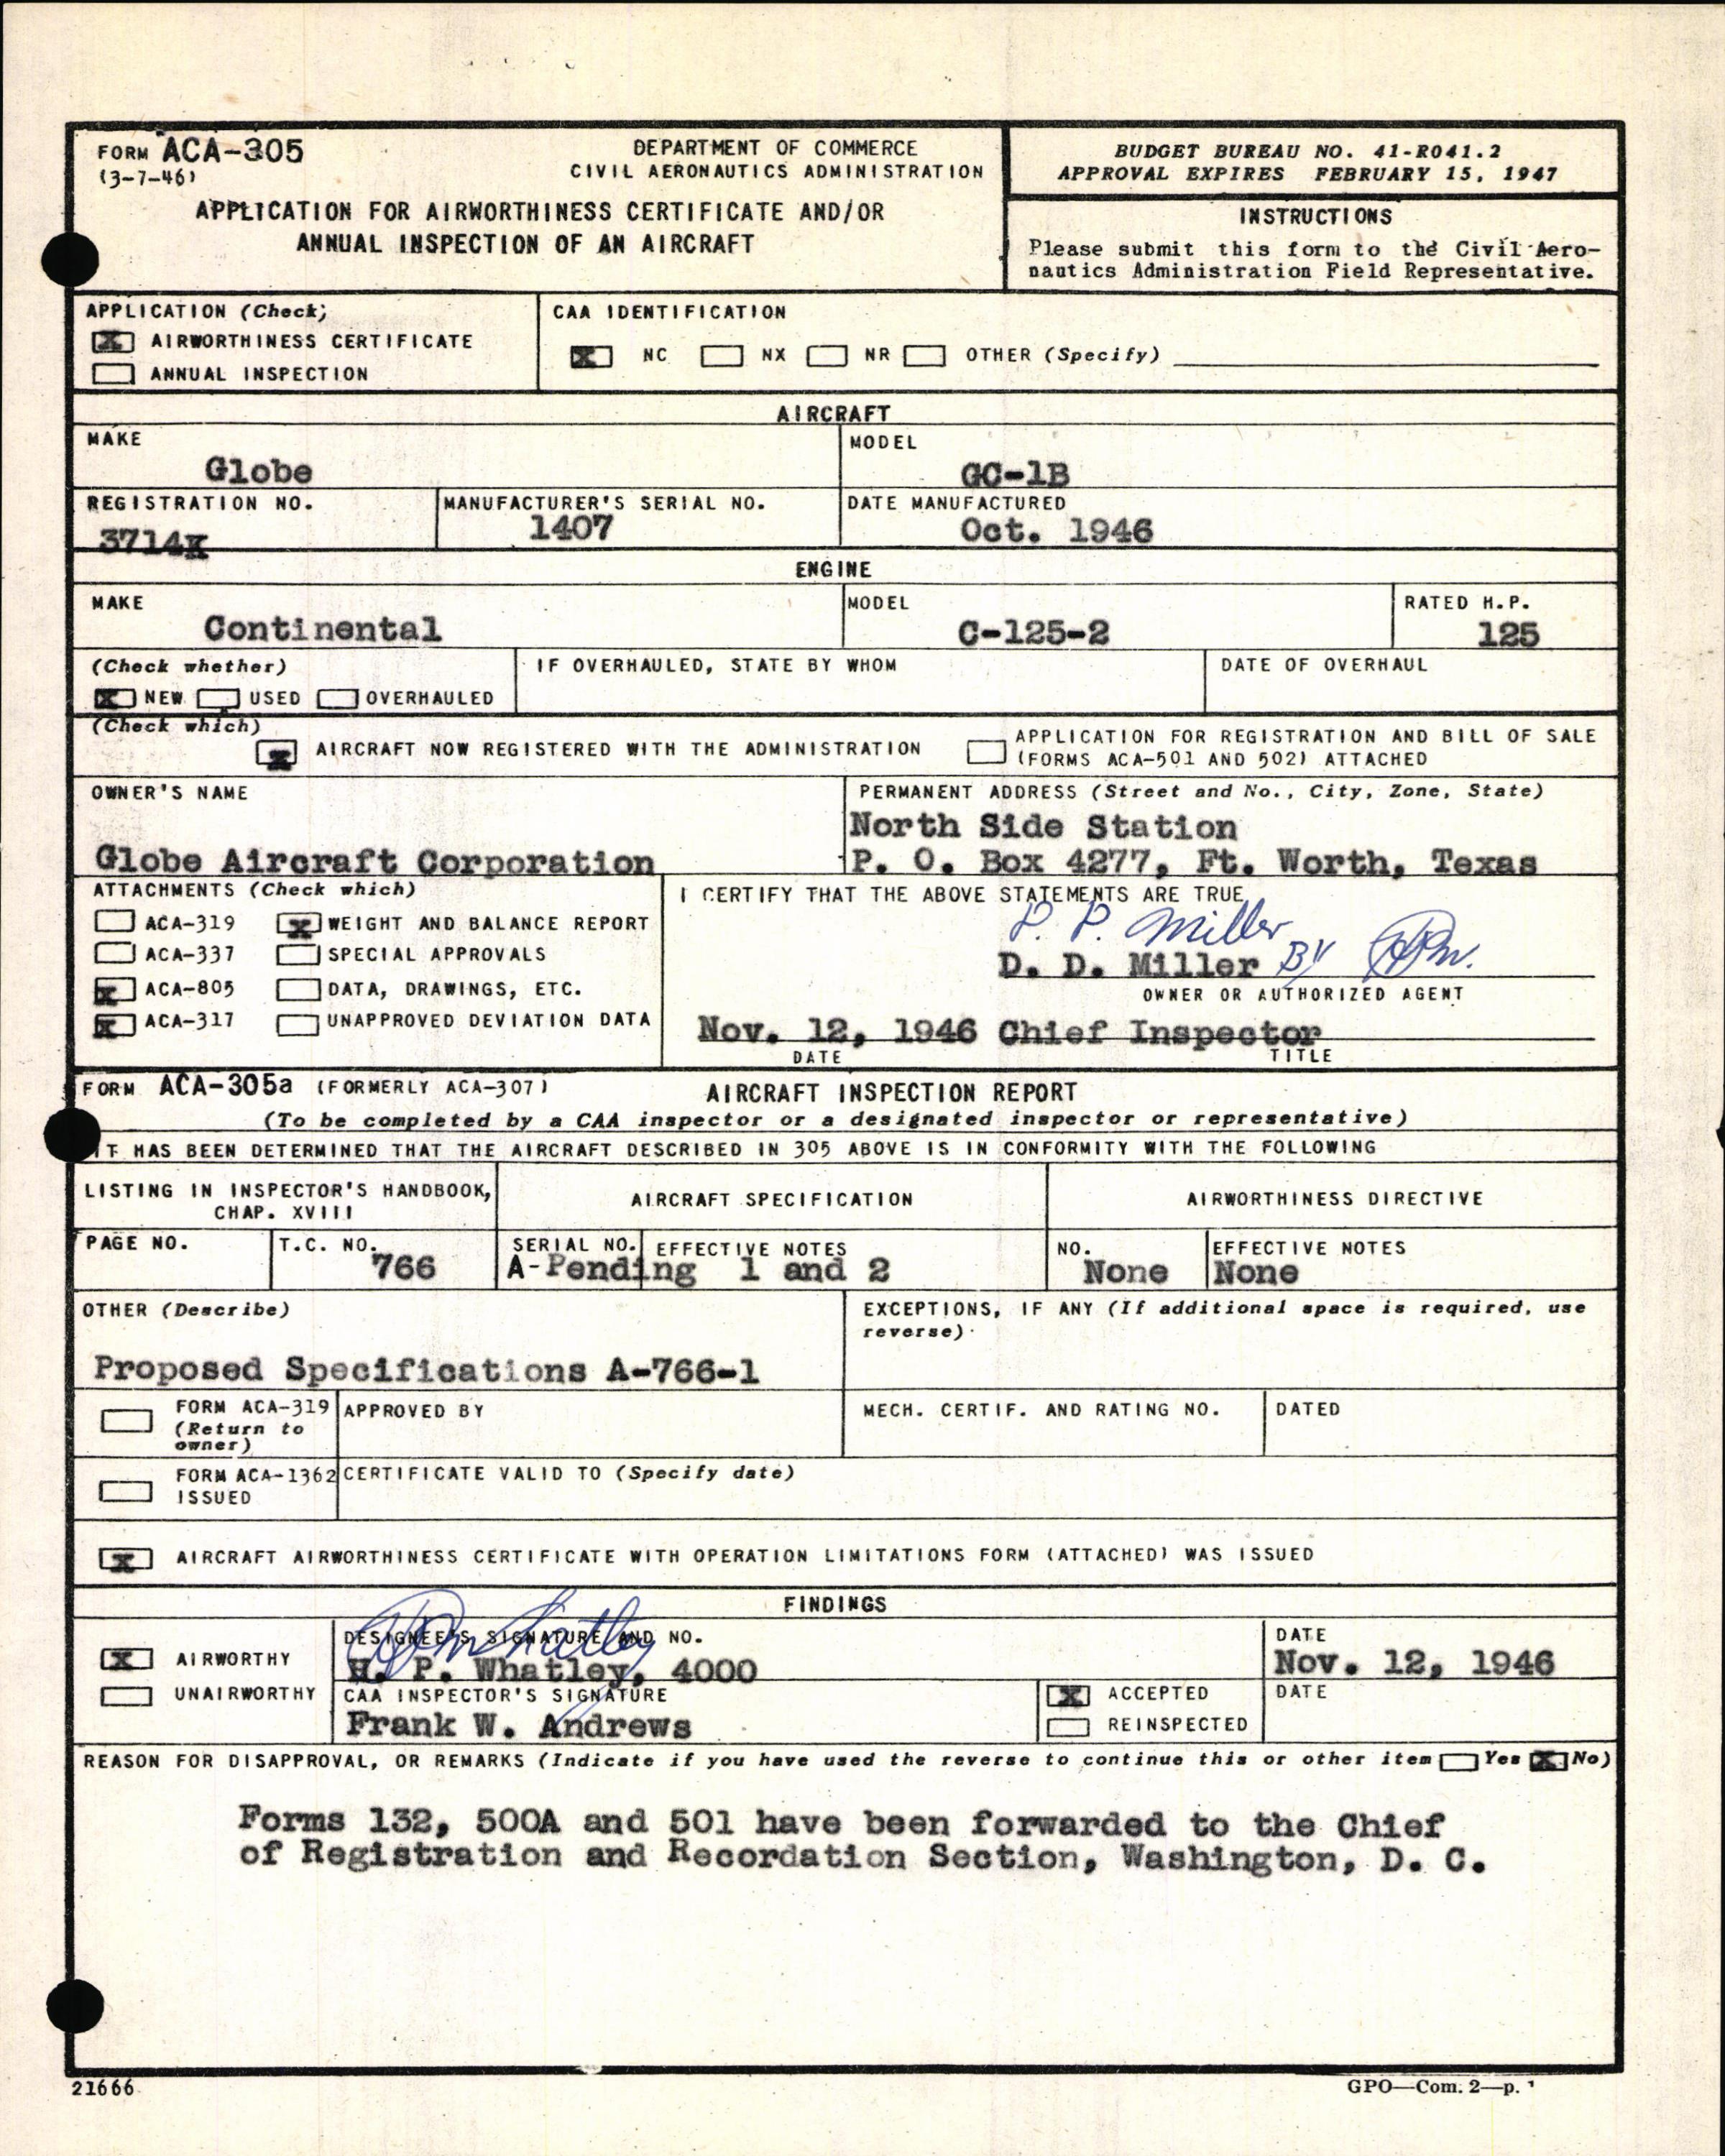 FORM ACA-305
(3-7-46)
DEPARTMENT OF COMMERCE
CIVIL AERONAUTICS ADMINISTRATION
APPLICATION FOR AIRWORTHINESS CERTIFICATE AND/OR
ANNUAL INSPECTION OF AN AIRCRAFT
BUDGET BUREAU NO. 41-R041.2
APPROVAL EXPIRES FEBRUARY 15, 1947
INSTRUCTIONS
Please submit this form to the Civil Aero-
nautics Administration Field Representative.
APPLICATION (Check)
X AIRWORTHINESS CERTIFICATE
ANNUAL INSPECTION
CAA IDENTIFICATION
X NC NX NR OTHER (Specify)
AIRCRAFT
MAKE
Globe
MODEL
GC-1B
REGISTRATION NO.
3714K
MANUFACTURER'S SERIAL NO.
1407
DATE MANUFACTURED
Oct. 1946
ENGINE
MAKE
Continental
MODEL
C-125-2
RATED H.P.
125
(Check whether)
X NEW USED OVERHAULED
IF OVERHAULED, STATE BY WHOM
DATE OF OVERHAUL
(Check which)
X AIRCRAFT NOW REGISTERED WITH THE ADMINISTRATION
APPLICATION FOR REGISTRATION AND BILL OF SALE
(FORMS ACA-501 AND 502) ATTACHED
OWNER'S NAME
Globe Aircraft Corporation
PERMANENT ADDRESS (Street and No., City, Zone, State)
North Side Station
P. O. Box 4277, Ft. Worth, Texas
ATTACHMENTS (Check which)
ACA-319 X WEIGHT AND BALANCE REPORT
ACA-337 SPECIAL APPROVALS
X ACA-805 DATA, DRAWINGS, ETC.
X ACA-317 UNAPPROVED DEVIATION DATA
I CERTIFY THAT THE ABOVE STATEMENTS ARE TRUE
D. D. Miller
D. D. Miller By HPW.
OWNER OR AUTHORIZED AGENT
Nov. 12, 1946 Chief Inspector
DATE TITLE
FORM ACA-305a (FORMERLY ACA-307) AIRCRAFT INSPECTION REPORT
(To be completed by a CAA inspector or a designated inspector or representative)
IT HAS BEEN DETERMINED THAT THE AIRCRAFT DESCRIBED IN 305 ABOVE IS IN CONFORMITY WITH THE FOLLOWING
LISTING IN INSPECTOR'S HANDBOOK,
CHAP. XVIII
AIRCRAFT SPECIFICATION
AIRWORTHINESS DIRECTIVE
PAGE NO.
T.C. NO.
766
SERIAL NO. EFFECTIVE NOTES
A-Pending 1 and 2
NO.
None
EFFECTIVE NOTES
None
OTHER (Describe)
Proposed Specifications A-766-1
EXCEPTIONS, IF ANY (If additional space is required, use
reverse)
FORM ACA-319
(Return to
owner)
APPROVED BY
MECH. CERTIF. AND RATING NO.
DATED
FORM ACA-1362
ISSUED
CERTIFICATE VALID TO (Specify date)
X AIRCRAFT AIRWORTHINESS CERTIFICATE WITH OPERATION LIMITATIONS FORM (ATTACHED) WAS ISSUED
FINDINGS
X AIRWORTHY
UNAIRWORTHY
DESIGNEE'S SIGNATURE AND NO.
HPWhatley
H. P. Whatley, 4000
DATE
Nov. 12, 1946
CAA INSPECTOR'S SIGNATURE
Frank W. Andrews
X ACCEPTED
REINSPECTED
DATE
REASON FOR DISAPPROVAL, OR REMARKS (Indicate if you have used the reverse to continue this or other item Yes X No)
Forms 132, 500A and 501 have been forwarded to the Chief
of Registration and Recordation Section, Washington, D. C.
21666
GPO—Com. 2—p. 1